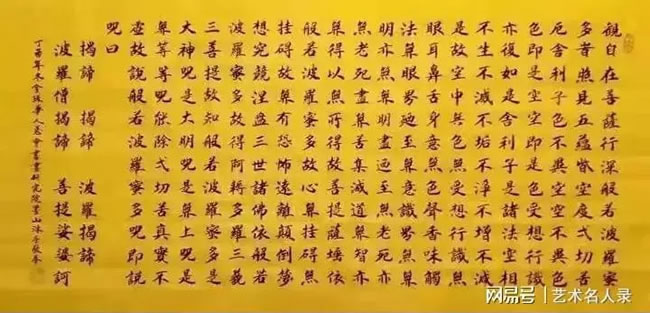 觀自在菩薩行深般若波羅蜜
多旹照見五蘊皆空度弌切苦
厄舍利子色不異空空不異色
色即是空空即是色受想行識
亦復如是舍利子是諸法空相
不生不滅不垢不淨不增不減
是故空中無色無受想行識無
眼耳鼻舌身意無色聲香味觸
法無眼界迺至無意識界無無
明亦無無明盡迺至無老死亦
無老死盡無苦集滅道無智亦
無得以無所得故菩提薩埵依
般若波羅蜜多故心無挂礙無
挂礙故無有恐怖遠離顛倒夢
想究竟涅盤三世諸佛依般若
波羅蜜多故得阿耨多羅三藐
三菩提故知般若波羅蜜多是
大神呪是大明呪是無上呪是
無等等呪能除弌切苦真實不
虛故說般若波羅蜜多呪即說
呪曰
揭諦 揭諦 波羅揭諦
波羅僧揭諦 菩提娑婆訶
丁酉年冬 華人 會書畫研究院 山沐手敬書
网易号 | 艺术名人录